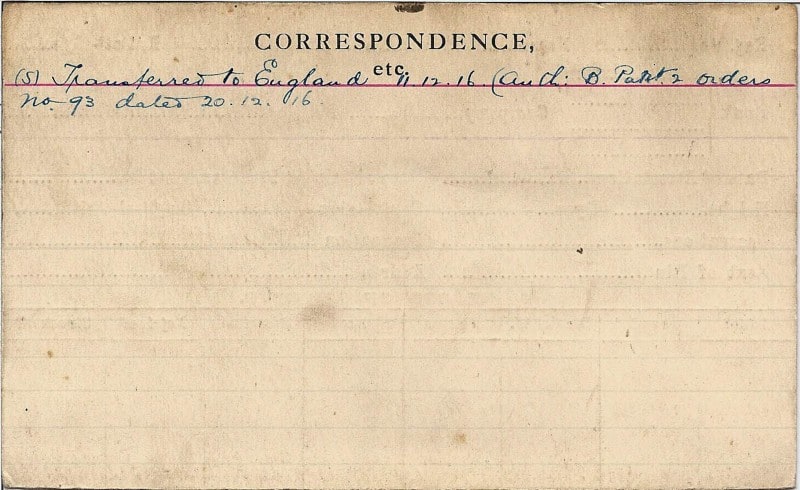 CORRESPONDENCE,
etc.
(S) Transferred to England 11.12.16. (Auth: B. Part. 2 orders
No. 93 dated 20.12.16.